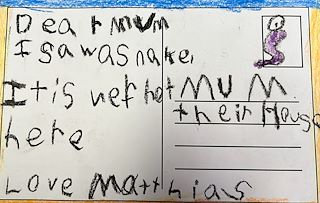 Dear mum
I sawasnake,
It is verhot
here
Love Matthias
MUM
their House